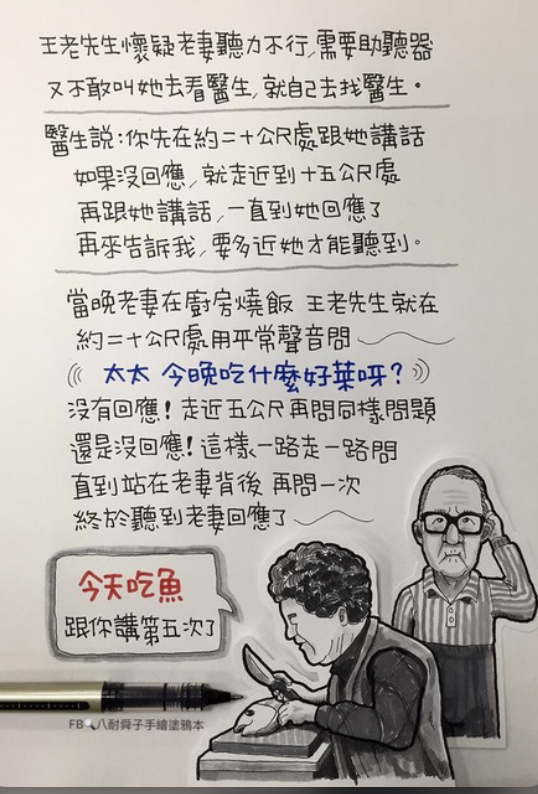 王老先生懷疑老妻聽力不行,需要助聽器
又不敢叫她去看醫生,就自己去找醫生。
醫生說:你先在約二十公尺處跟她講話
如果沒回應,就走近到十五公尺處
再跟她講話,一直到她回應了
再來告訴我,要多近她才能聽到。
當晚老妻在廚房燒飯 王老先生就在
約二十公尺處用平常聲音問
太太 今晚吃什麼好菜呀?
沒有回應!走近五公尺再問同樣問題
還是沒回應!這樣一路走一路問
直到站在老妻背後 再問一次
終於聽到老妻回應了
今天吃魚
跟你講第五次了
FB 八耐舜子手繪塗鴉本